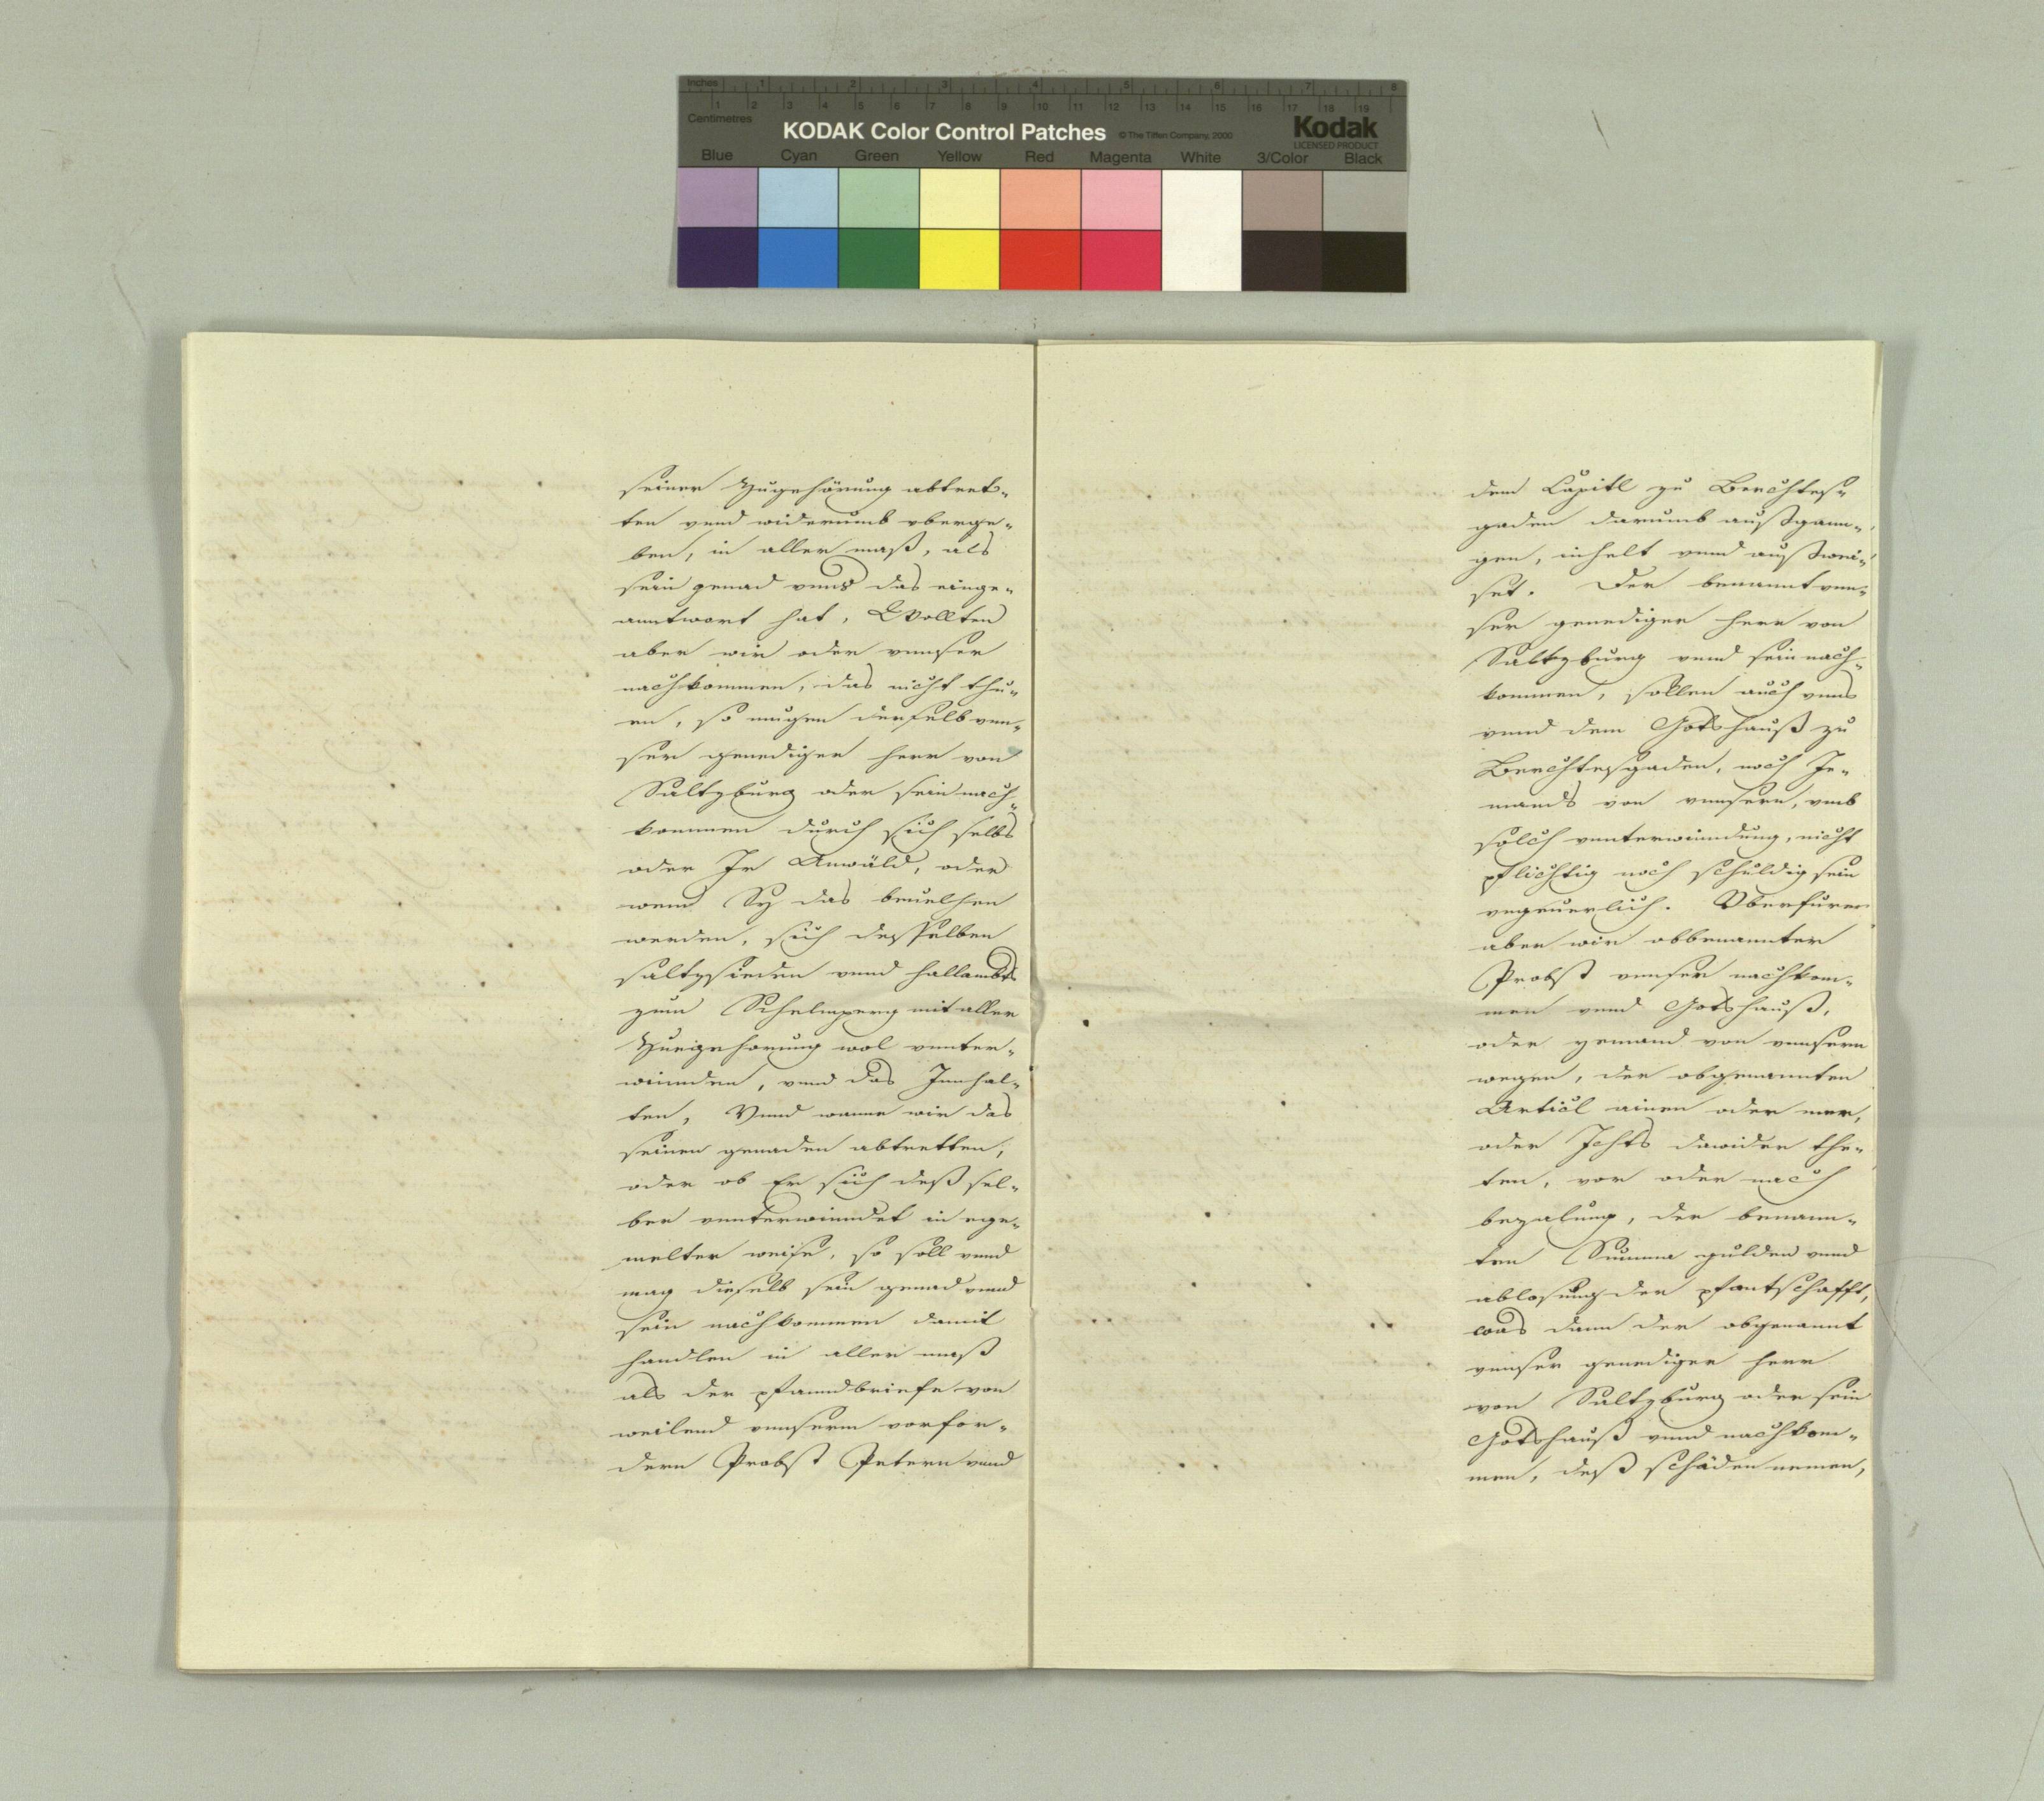 Inches 1 2 3 4 5 6 7 8
Centimetres 1 2 3 4 5 6 7 8 9 10 11 12 13 14 15 16 17 18 19
KODAK Color Control Patches © The Tiffen Company, 2000 Kodak
LICENSED PRODUCT
Blue Cyan Green Yellow Red Magenta White 3/Color Black
seiner Zugehörung abtret-
ten vnnd widerumb vberge-
ben, in aller maß, als
sein genad vnns das einge-
anntwort hat, Wollten
aber wir oder vnnser
nachkommen, das nicht thu-
en, so mugen derselb vnn-
ser genediger herr von
Saltzburg oder sein nach-
kommen durch sich selbs
oder Ir Anwäld, oder
wem Sy das beuelhen
werden, sich desselben
saltzsieden vnnd hallambts
zum Schelmperg mit aller
Zuegehorung wol vnnter-
winnden, vnnd das Innhal-
ten, Vnnd wann wir das
seinen genaden abtretten,
oder ob Er sich deß sel-
ber vnnterwinndet in ege-
melter weise, so soll vnnd
mag dieselb sein genad vnnd
sein nachkommen damit
handlen in aller maß
als der pfanndbriefe von
weilend vnnserm vorfor-
dern Probst Petern vnnd
dem Capitl zu Berchtes-
gaden darumb außgann-
gen, inhelt vnnd außwei-
set. Der benannt vnn-
ser genediger herr von
Saltzburg vnnd sein nach-
kommen, sollen auch vnns
vnnd dem Gotshauß zu
Berchtesgaden, noch Je-
mands von vnnsern, vmb
solch vnnterwinndung, nicht
pflichtig noch schuldig sein
vngeuerlich. Vberfüren
aber wir obbenannter
Probst vnnser nachkom-
men vnnd Gotshauß,
oder yemand von vnnsern
wegen, der obgenannten
Articl ainen oder mer,
oder Ichts dawider the-
ten, vor oder nach
bezalung, der benann-
ten Summa gulden vnnd
ablosung der pfantschafft,
was dann der obgenannt
vnnser genediger herr
von Saltzburg oder sein
Gotshauß vnnd nachkom-
men, deß schäden nemen,